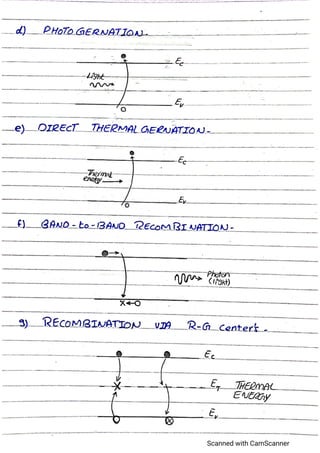 d) PHOTO GERNATION-
Ec
Light
Ev
e) DIRECT THERMAL GERNATION-
Ec
Thermal
energy
Ev
f) BAND-to-BAND RECOMBINATION-
Photon
(light)
g) RECOMBINATION VIA R-G Centers -
Ec
ET THERMAL
ENERGY
Ev
Scanned with CamScanner